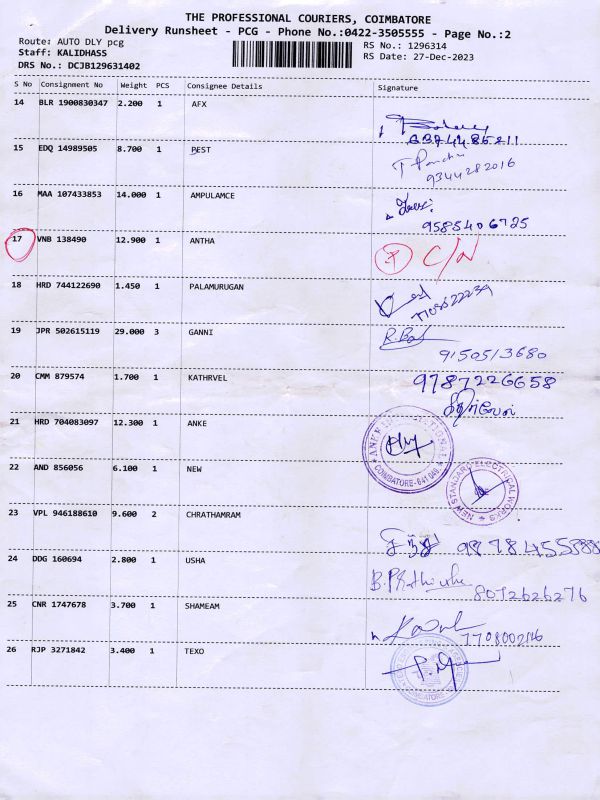 THE PROFESSIONAL COURIERS, COIMBATORE
Delivery Runsheet - PCG - Phone No.:0422-3505555 - Page No.:2
Route: AUTO DLY pcg
Staff: KALIDHASS
DRS No.: DCJB129631402
RS No.: 1296314
RS Date: 27-Dec-2023
S No Consignment No Weight PCS Consignee Details Signature
14 BLR 1900830347 2.200 1 AFX
15 EDQ 14989505 8.700 1 PEST
9344282016
16 MAA 107433853 14.000 1 AMPULAMCE
9585406725
17 VNB 138490 12.900 1 ANTHA C/N
18 HRD 744122690 1.450 1 PALAMURUGAN
19 JPR 502615119 29.000 3 GANNI
9150513680
20 CMM 879574 1.700 1 KATHRVEL 9787226658
21 HRD 704083097 12.300 1 ANKE
COIMBATORE-641 049
22 AND 856056 6.100 1 NEW
NEW STANDARD ELECTRICAL WORKS
23 VPL 946188610 9.600 2 CHRATHAMRAM
24 DDG 160694 2.800 1 USHA
8072626276
25 CNR 1747678 3.700 1 SHAMEAM
26 RJP 3271842 3.400 1 TEXO